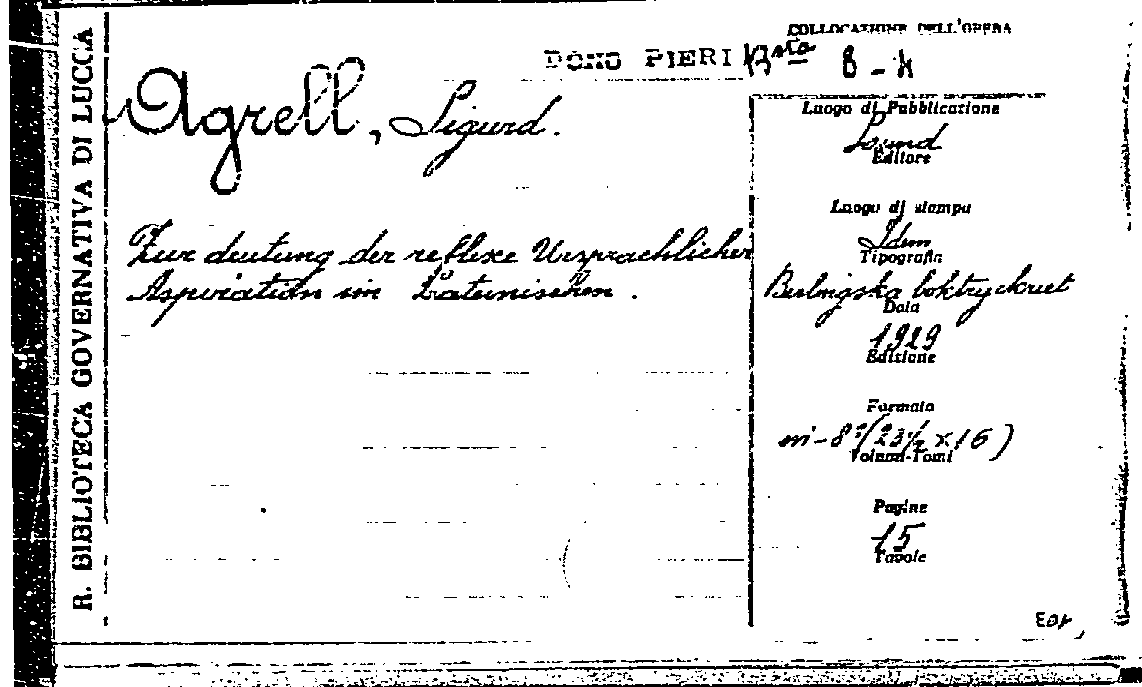 R. BIBLIOTECA GOVERNATIVA DI LUCCA
COLLOCAZIONE DELL'OPERA
DONO PIERI Bsta 8-A
Agrell, Sigurd.
Zur deutung der reflexe Ursprachlicher
Aspiration im Lateinischen.
Luogo di Pubblicazione
Lund
Editore
Luogo di stampa
Idem
Tipografia
Berlingska boktryckeriet
Data
1929
Edizione
Formato
in-8° (23½ x 16)
Volumi-Tomi
Pagine
15
Tavole